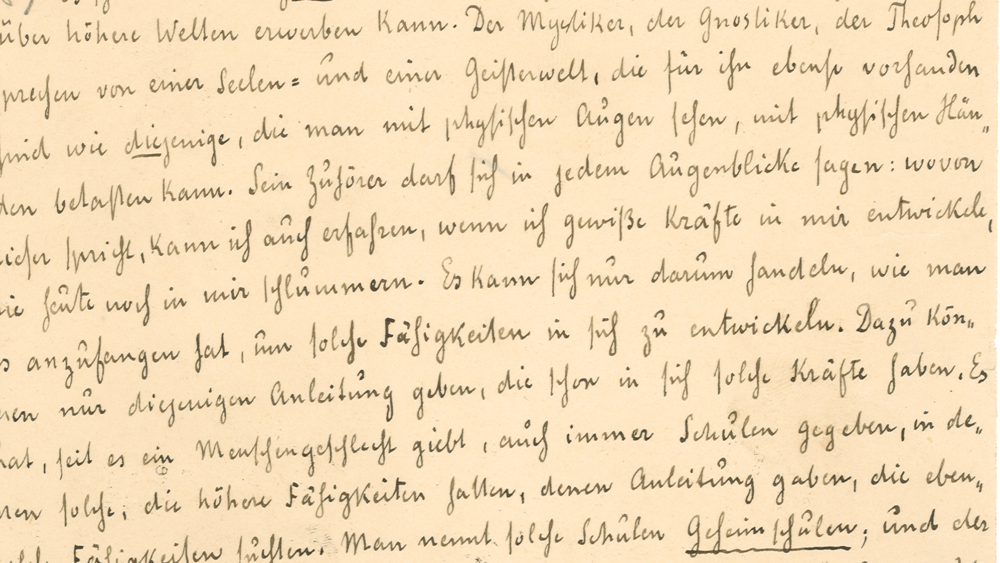 über höhere Welten erwerben kann. Der Mystiker, der Gnostiker, der Theosoph
sprechen von einer Seelen= und einer Geisterwelt, die für ihn ebenso vorhanden
sind wie diejenige, die man mit physischen Augen sehen, mit physischen Hän„
den betasten kann. Sein Zuhörer darf sich in jedem Augenblicke sagen: wovon
dieser spricht, kann ich auch erfahren, wenn ich gewiße Kräfte in mir entwickele,
die heute noch in mir schlummern. Es kann sich nur darum handeln, wie man
es anzufangen hat, um solche Fähigkeiten in sich zu entwickeln. Dazu kön„
nen nur diejenigen Anleitung geben, die schon in sich solche Kräfte haben. Es
hat, seit es ein Menschengeschlecht giebt, auch immer Schulen gegeben, in de„
nen solche, die höhere Fähigkeiten hatten, denen Anleitung gaben, die eben„
solche Fähigkeiten suchten. Man nennt solche Schulen Geheimschulen; und der